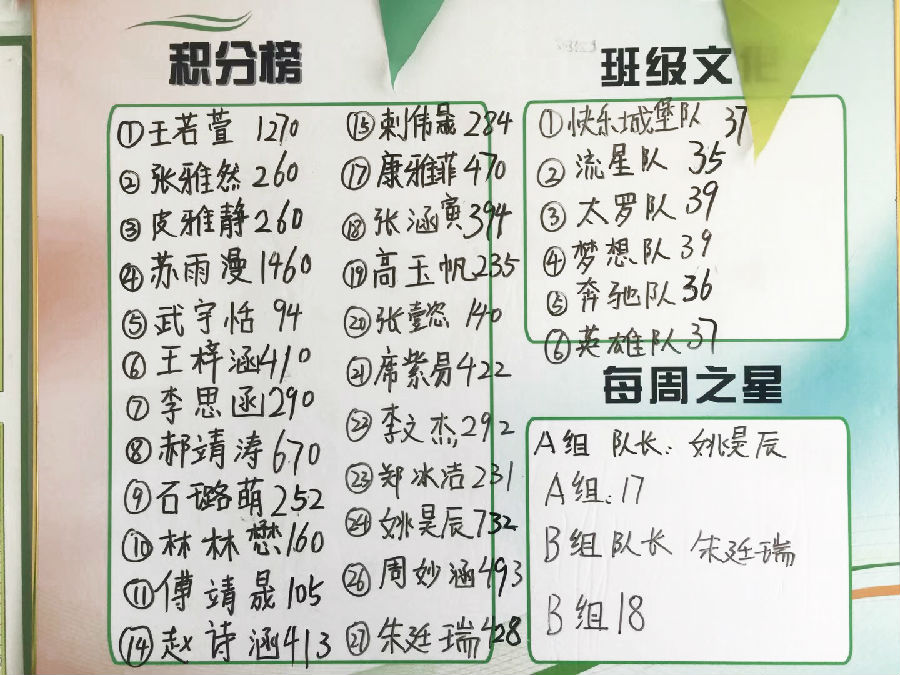 积分榜
①王若萱 1270
②张雅然 260
③皮雅静 260
④苏雨漫 1460
⑤武宇恬 94
⑥王梓涵 410
⑦李思函 290
⑧郝靖涛 670
⑨石璐萌 252
⑩林林懋 160
⑪傅靖晟 105
⑭赵诗涵 413
⑮刺伟晟 284
⑰康雅菲 470
⑱张涵寅 394
⑲高玉帆 235
⑳张懿恣 140
㉑席紫易 422
㉒李文杰 292
㉓郑冰洁 231
㉔姚昊辰 732
㉖周妙涵 493
㉗朱廷瑞 428
班级文化
①快乐城堡队 37
②流星队 35
③太罗队 39
④梦想队 39
⑤奔驰队 36
⑥英雄队 37
每周之星
A组 队长: 姚昊辰
A组:17
B组队长 朱廷瑞
B组18